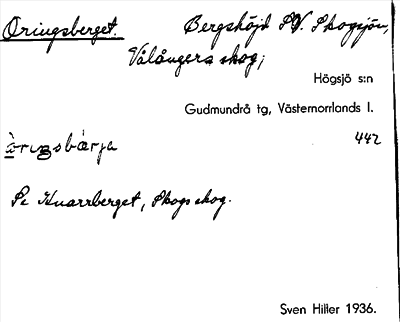 Oringsberget. Bergshöjd SV. Skogsjön,
Vålångers skog;
Högsjö s:n
Gudmundrå tg, Västernorrlands l.
442
Se Knarrberget, Skogs skog.
Sven Hiller 1936.